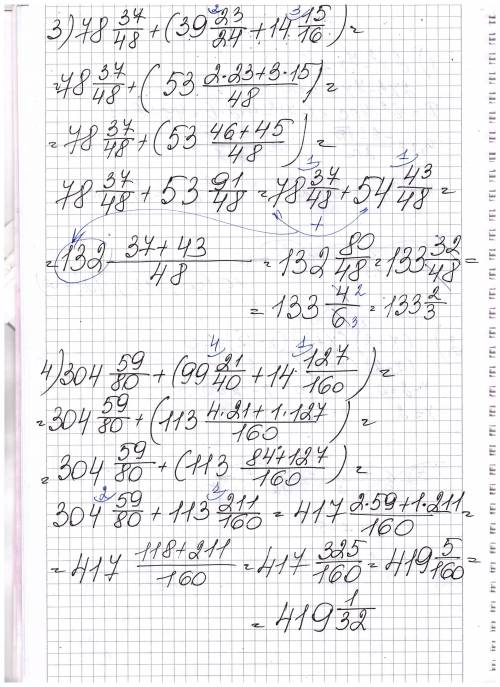 3) 78 37/48 + (39 23/24 + 14 15/16) =
= 78 37/48 + (53 (2·23+3·15)/48) =
= 78 37/48 + (53 (46+45)/48) =
78 37/48 + 53 91/48 = 78 37/48 + 54 43/48 =
= 132 (37+43)/48 = 132 80/48 = 133 32/48 =
= 133 4/6 = 133 2/3
4) 304 59/80 + (99 21/40 + 14 127/160) =
= 304 59/80 + (113 (4·21+1·127)/160) =
= 304 59/80 + (113 (84+127)/160) =
304 59/80 + 113 211/160 = 417 (2·59+1·211)/160 =
= 417 (118+211)/160 = 417 325/160 = 419 5/160 =
= 419 1/32